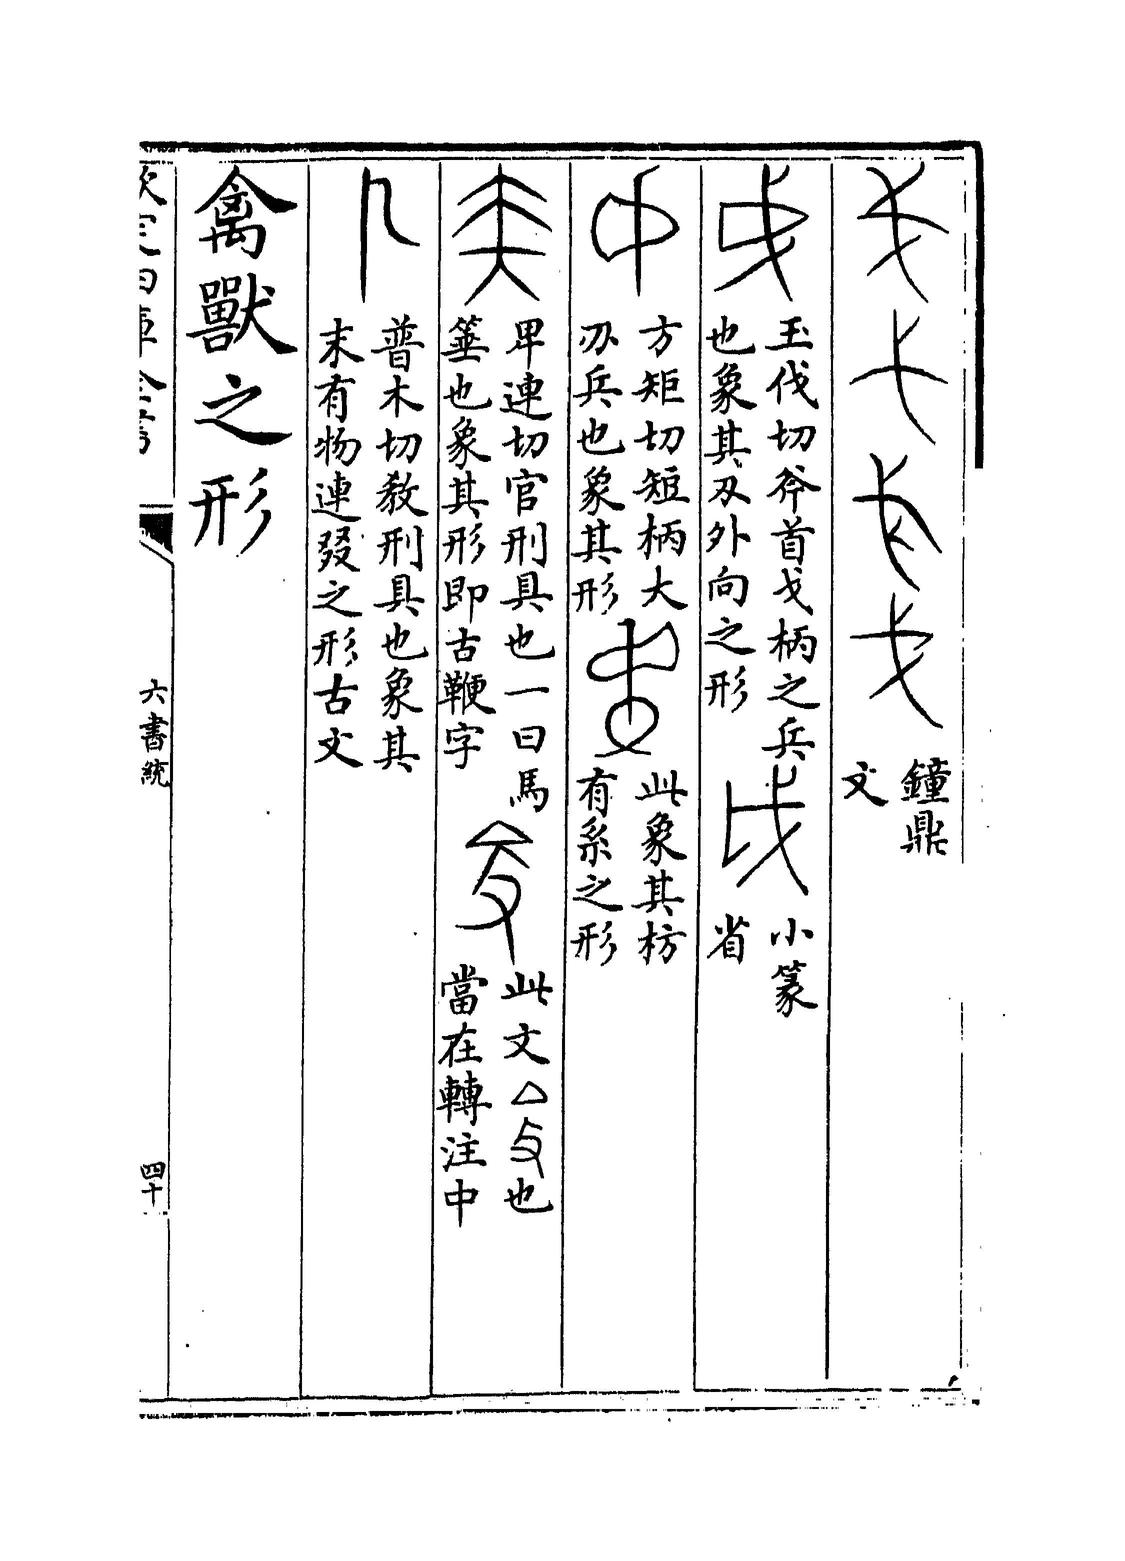 鐘鼎
文
玉伐切斧首戈柄之兵
也象其刄外向之形
小篆
省
方矩切短柄大
刅兵也象其形
此象其枋
有糸之形
卑連切官刑具也一曰馬
箠也象其形即古鞭字
此文亼攴也
當在轉注中
普木切敎刑具也象其
末有物連叕之形古文
禽獸之形
欽定四庫全書
六書統
四十